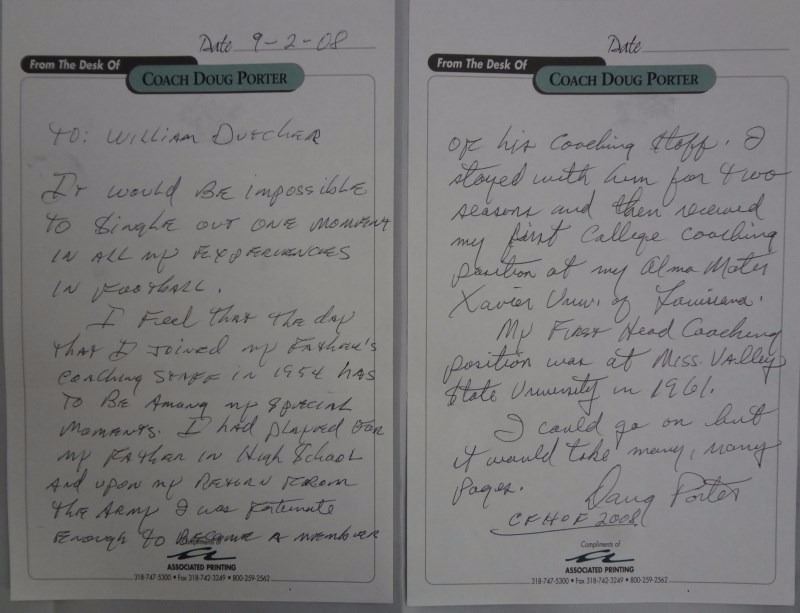 Date 9-2-08
From The Desk Of
COACH DOUG PORTER
TO: WILLIAM DUTCHER
IT WOULD BE IMPOSSIBLE
TO SINGLE OUT ONE MOMENT
IN ALL MY EXPERIENCES
IN FOOTBALL.
I FEEL THAT THE DAY
THAT I JOINED MY FATHER'S
COACHING STAFF IN 1954 HAS
TO BE AMONG MY SPECIAL
MOMENTS. I HAD PLAYED FOR
MY FATHER IN HIGH SCHOOL
AND UPON MY RETURN FROM
THE ARMY I WAS FORTUNATE
ENOUGH TO BECOME A MEMBER
Compliments of
ASSOCIATED PRINTING
318-747-5300 • Fax 318-742-3249 • 800-259-2562
Date
From The Desk Of
COACH DOUG PORTER
of his coaching staff. I
stayed with him for two
seasons and then received
my first College coaching
position at my Alma Mater
Xavier Univ. of Louisiana.
My First Head Coaching
position was at Miss. Valley
State University in 1961.
I could go on but
it would take many, many
pages.
Doug Porter
CFHOF 2008
Compliments of
ASSOCIATED PRINTING
318-747-5300 • Fax 318-742-3249 • 800-259-2562